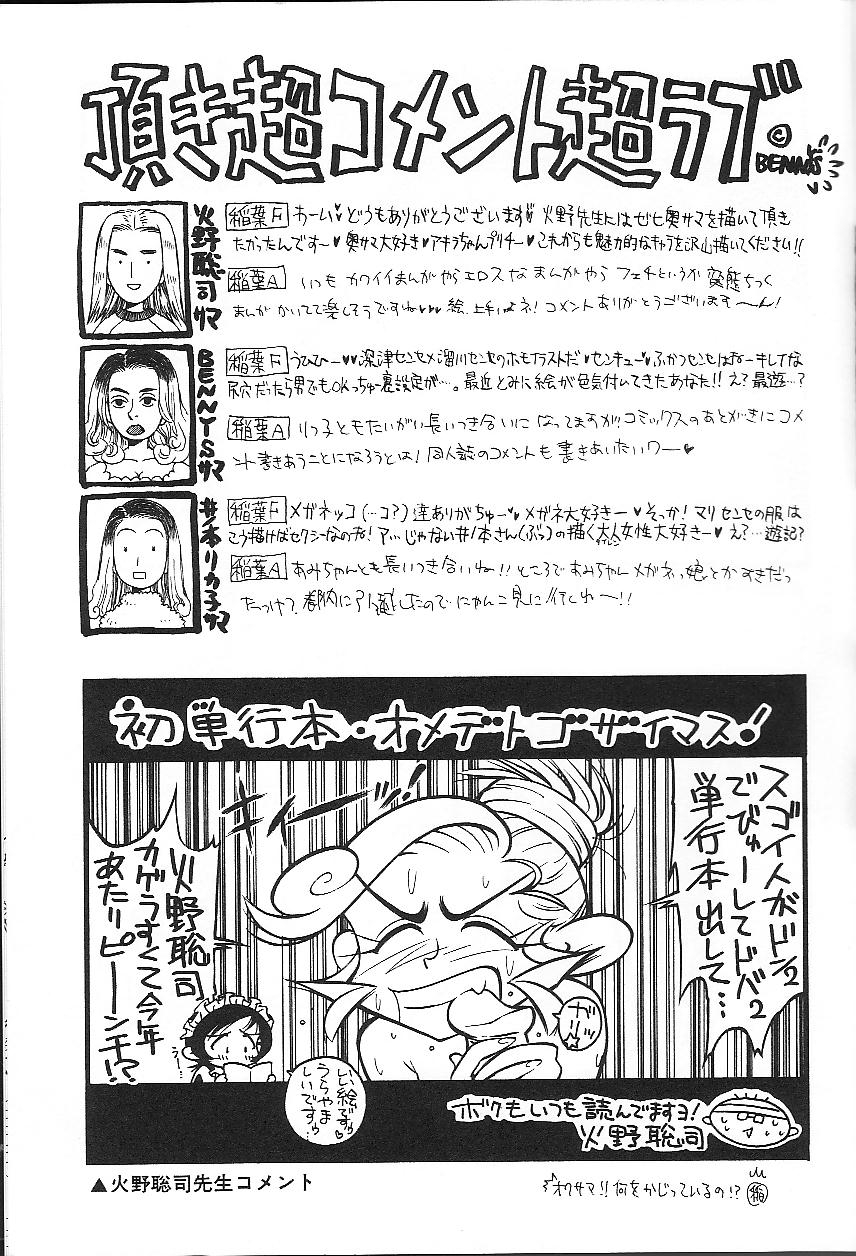 頂き超コメント超ラブ。
©BENNYS
火野聡司サマ
稲葉F おーい♥どうもありがとうございます♥火野先生にはぜヒ奥サマを描いて頂き
たかったんです〜♥奥サマ大好き♥アキラちゃんプリチー♥これからも魅力的なキャラを沢山描いてください!!
稲葉A いつもカワイイまんがやらエロスなまんがやらフェチというか変態ちっく
まんがかいてて楽しそうですね♥♥♥絵、上手いよネ!コメントありがとうございます〜ん!
BENNY'Sサマ
稲葉F うひひー♥♥深津センセ×溜川センセのホモイラストだ♥センキュー♥ふかつセンセはおーキレイな
尻穴だったら男でもOKっちゅー裏設定が…。最近とみに絵が色気付いてきたあなた!!え?最遊…?
稲葉A りっ子ともたいがい長いつき合いになってますがコミックスのあとがきにコメ
ント書きあうことになろうとは!同人誌のコメントも書きあいたいワー♥
井ノ本リカ子サマ
稲葉F メガネッコ(…コ?)達ありがちゅー♥メガネ大好きー♥そっか!マリセンセの服は
こう描けばセクシーなのね!ア…じゃない井ノ本さん(ぶっ)の描く大人女性大好きー♥え?…遊記?
稲葉A あみちゃんとも長いつき合いね!!ところであみちゃんメガネっ娘とかすきだっ
たっけ?都内に引越したのでにゃんこ見に行くわー!!
初単行本・オメデトゴザイマス!
スゴイ人がドン2
でびゅーしてドバ2
単行本出して…
キィーッ!
火野聡司
カゲうすくて今年
あたりピーンチ!?
ガリッ
うー…
いい絵ですぅ♡
うらやま
しいですぅ…
ボクもいつも読んでますヨ!
火野聡司
▲火野聡司先生コメント
オクサマ!!何をかじっているの!?
稲